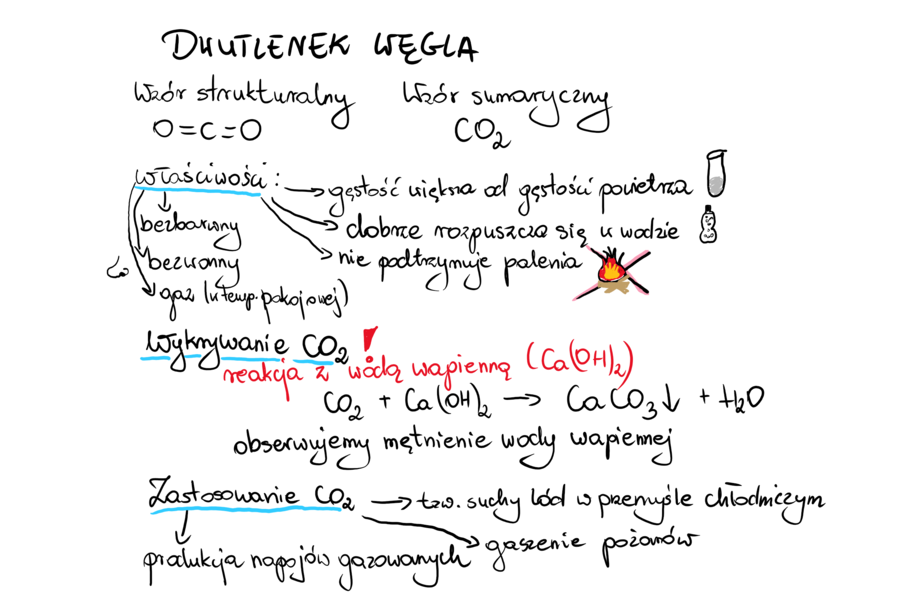 DWUTLENEK WĘGLA
Wzór strukturalny
Wzór sumaryczny
O=C=O
CO₂
Właściwości:
gęstość większa od gęstości powietrza
dobrze rozpuszcza się w wodzie
nie podtrzymuje palenia
bezbarwny
bezwonny
gaz (w temp. pokojowej)
Wykrywanie CO₂ !
reakcja z wodą wapienną (Ca(OH)₂)
CO₂ + Ca(OH)₂ → CaCO₃↓ + H₂O
obserwujemy mętnienie wody wapiennej
Zastosowanie CO₂
tzw. suchy lód w przemyśle chłodniczym
gaszenie pożarów
produkcja napojów gazowanych